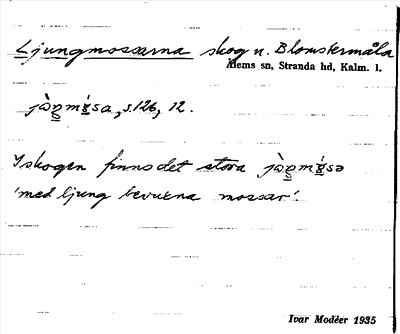 Ljungmossarna skog n. Blomstermåla
Ålems sn, Stranda hd, Kalm. l.
s. 126, 12.
I skogen finns det stora
'med ljung bevuxna mossar'.
Ivar Modéer 1935